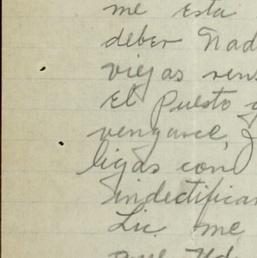 me esta
deber Nad
viejas ren
El Puesto y
vengarce, 
ligas con
indectifican
Lic. me
que Ud